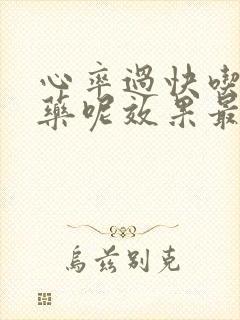 心率過快喫
藥呢效果最
烏茲別克